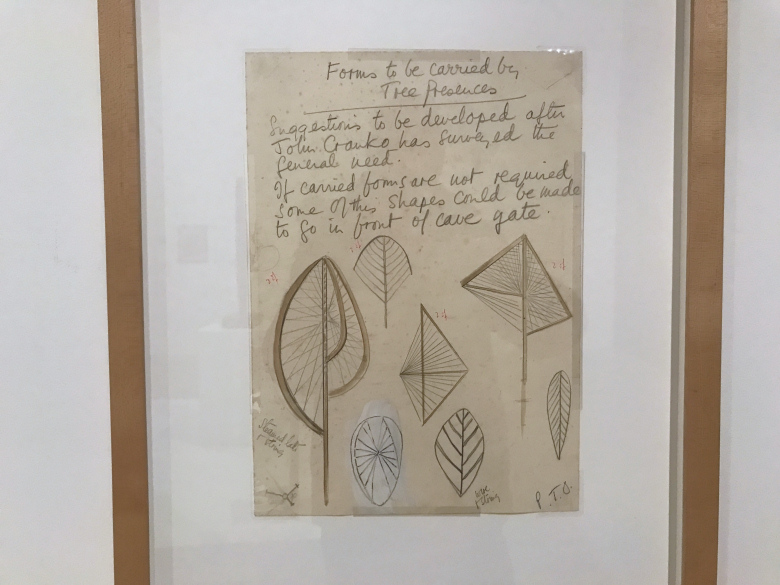 Forms to be carried by
Tree Presences
Suggestions to be developed after
John Cranko has surveyed the
general need.
If carried forms are not required
some of this shapes could be made
to go in front of cave gate.
string
wire
& string
P.T.O.